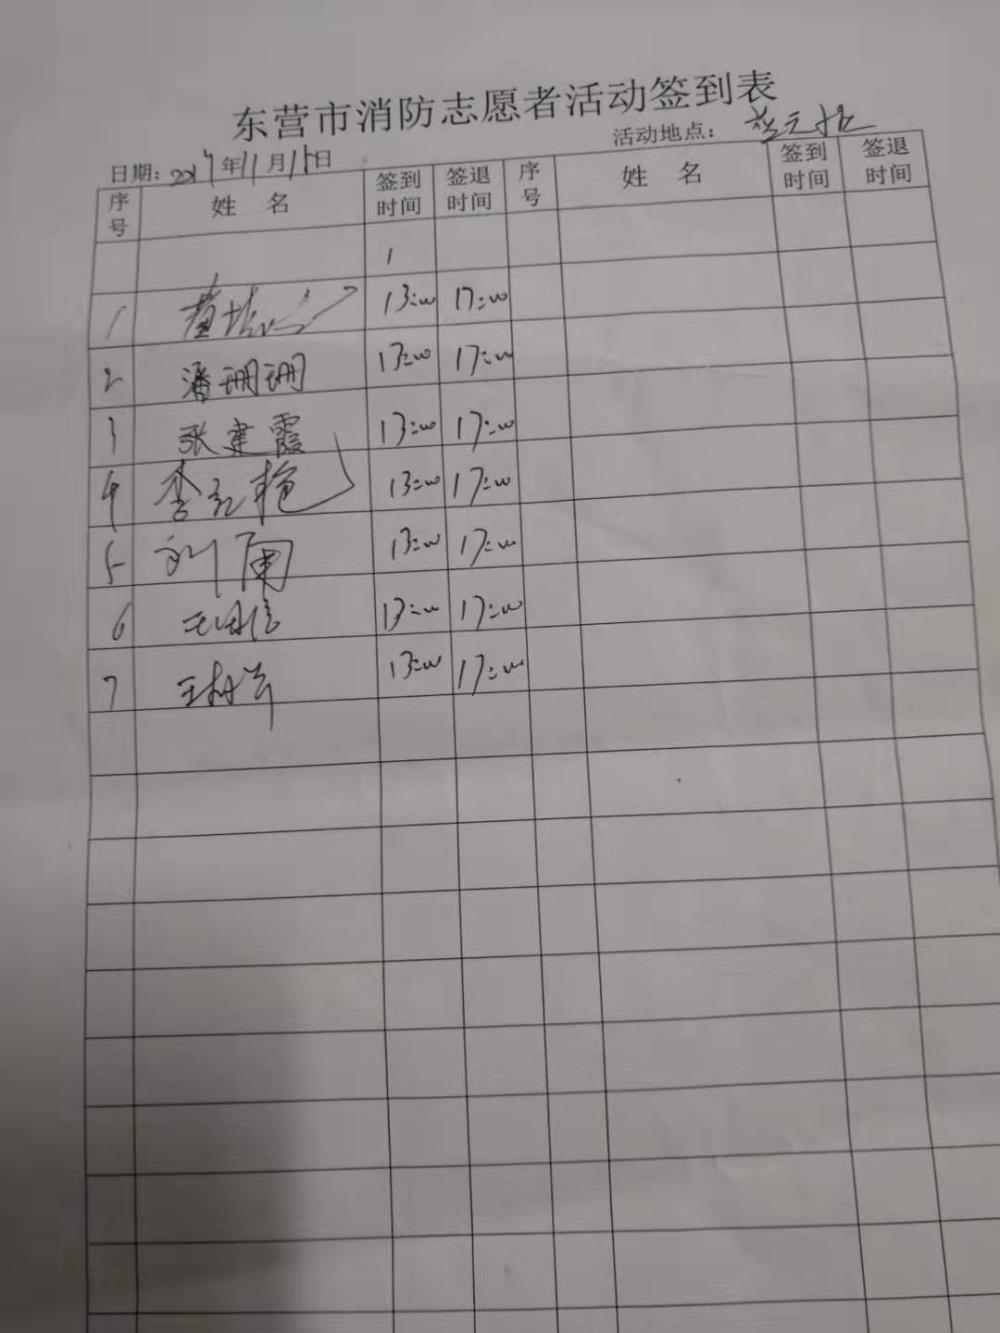 东营市消防志愿者活动签到表
日期: 年11月15日 活动地点:
序号 姓 名 签到时间 签退时间 序号 姓 名 签到时间 签退时间
1 13:00 17:00
2 潘珊珊 13:00 17:00
3 张建霞 13:00 17:00
4 李红艳 13:00 17:00
5 刘 13:00 17:00
6 13:00 17:00
7 王 13:00 17:00